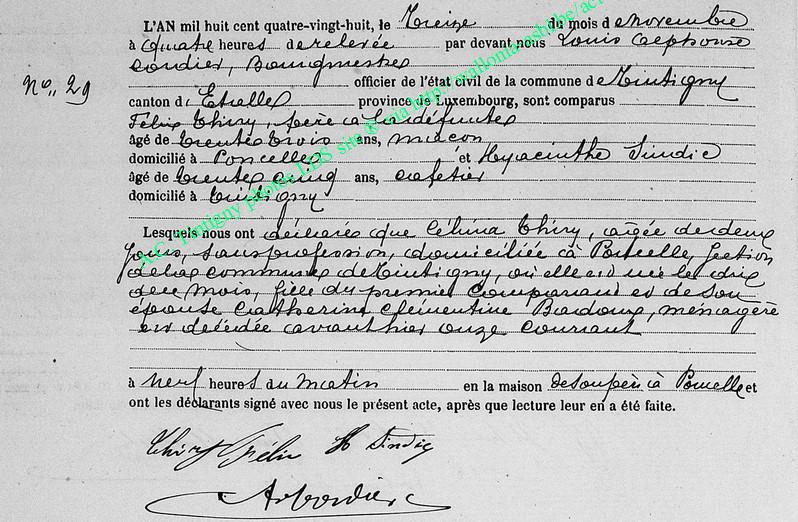 L'AN mil huit cent quatre-vingt-huit, le Treize du mois de novembre
à quatre heures de relevée par devant nous Louis Alphonse
Cordier, Bourgmestre
No., 29
officier de l'état civil de la commune de Tintigny
canton d' Etalle province de Luxembourg, sont comparus
Félix Thiry, père à la défunte
âgé de trente trois ans, maçon
domicilié à Poncelle et Hyacinthe Sindic
âgé de trente cinq ans, cafetier
domicilié à Tintigny
Lesquels nous ont déclarés que Célina Thiry, agée de deux
jours, sans profession, domiciliée à Poncelle, section
de la commune de Tintigny, où elle est née le dix
de ce mois, fille du premier Comparant et de son
épouse Catherine Clémentine, ménagère
est décédée avant hier onze courant
à neuf heures du matin en la maison de son père à Poncelle et
ont les déclarants signé avec nous le présent acte, après que lecture leur en a été faite.
Thiry Félix H Sindic
A.C. Tintigny photos LDS site ® via http://